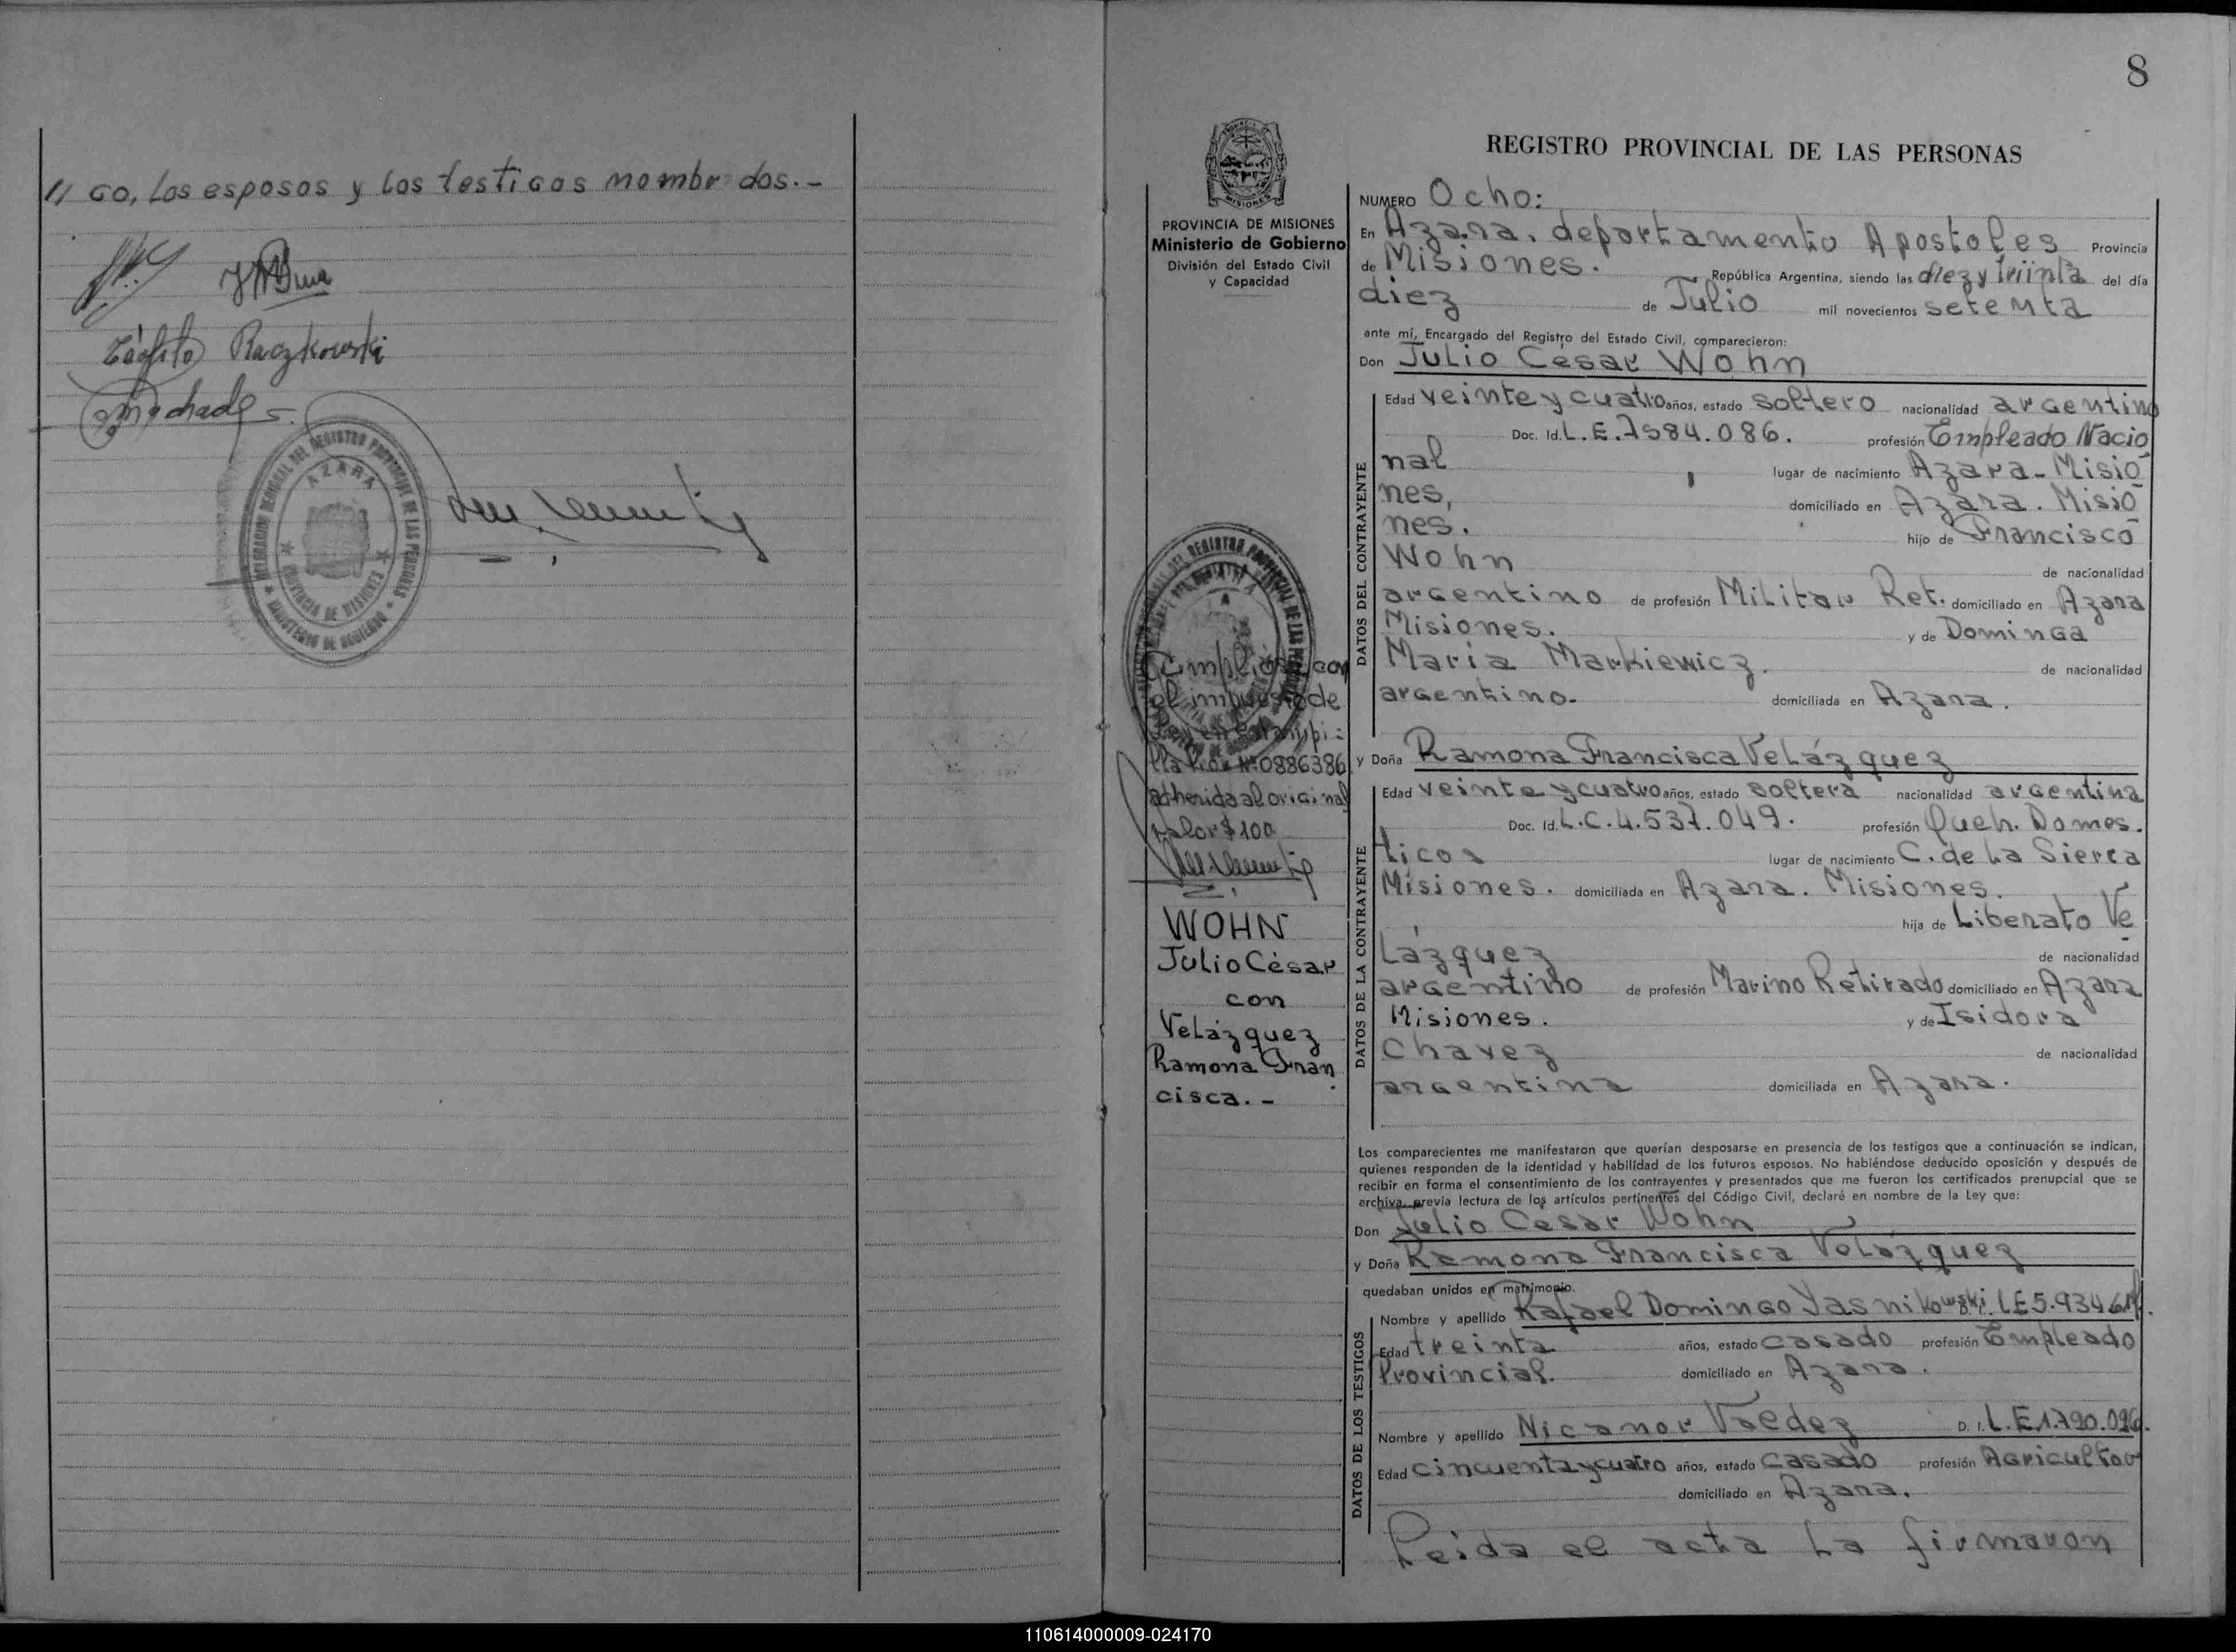 // co, los esposos y los testigos nombrados.-
Teófilo Raczkowski
DELEGACION SECCIONAL DEL REGISTRO PROVINCIAL DE LAS PERSONAS
AZARA
PROVINCIA DE MISIONES
MINISTERIO DE GOBIERNO
8
PROVINCIA DE MISIONES
Ministerio de Gobierno
División del Estado Civil
y Capacidad
Cumplióse con
el impuesto de
Ley en Estampi:
lla Nº 0886386
adherida al original
valor $ 100
WOHN
Julio César
con
Velázquez
Ramona Fran
cisca.-
REGISTRO PROVINCIAL DE LAS PERSONAS
NUMERO Ocho:
En Azara, departamento Apostoles Provincia
de Misiones. República Argentina, siendo las diez y treinta del día
diez de Julio mil novecientos setenta
ante mí, Encargado del Registro del Estado Civil, comparecieron:
Don Julio César Wohn
DATOS DEL CONTRAYENTE
Edad veinte y cuatro años, estado soltero nacionalidad argentino
Doc. Id. L.E. 7584.086. profesión Empleado Nacio
nal lugar de nacimiento Azara-Misio
nes, domiciliado en Azara. Misio
nes. hijo de Francisco
Wohn de nacionalidad
argentino de profesión Militar Ret. domiciliado en Azara
Misiones. y de Dominga
María Markiewicz. de nacionalidad
argentino. domiciliada en Azara.
y Doña Ramona Francisca Velázquez
DATOS DE LA CONTRAYENTE
Edad veinte y cuatro años, estado soltera nacionalidad argentina
Doc. Id. L.C. 4.537.049. profesión Queh. Domes.
ticos lugar de nacimiento C. de La Sierra
Misiones. domiciliada en Azara. Misiones.
hija de Liberato Ve
Lázquez de nacionalidad
argentino de profesión Marino Retirado domiciliado en Azara
Misiones. y de Isidora
Chavez de nacionalidad
argentina domiciliada en Azara.
Los comparecientes me manifestaron que querían desposarse en presencia de los testigos que a continuación se indican,
quienes responden de la identidad y habilidad de los futuros esposos. No habiéndose deducido oposición y después de
recibir en forma el consentimiento de los contrayentes y presentados que me fueron los certificados prenupcial que se
archiva, previa lectura de los artículos pertinentes del Código Civil, declaré en nombre de la Ley que:
Don Julio César Wohn
y Doña Ramona Francisca Velázquez
quedaban unidos en matrimonio.
DATOS DE LOS TESTIGOS
Nombre y apellido Rafael Domingo Yasnikowski. L.E 5.934.
Edad treinta años, estado casado profesión Empleado
Provincial. domiciliado en Azara.
Nombre y apellido Nicanor Valdez D. I. L.E. 1.790.096.
Edad cincuenta y cuatro años, estado casado profesión Agricultor
domiciliado en Azara.
Leida el acta la firmaron
110614000009-024170